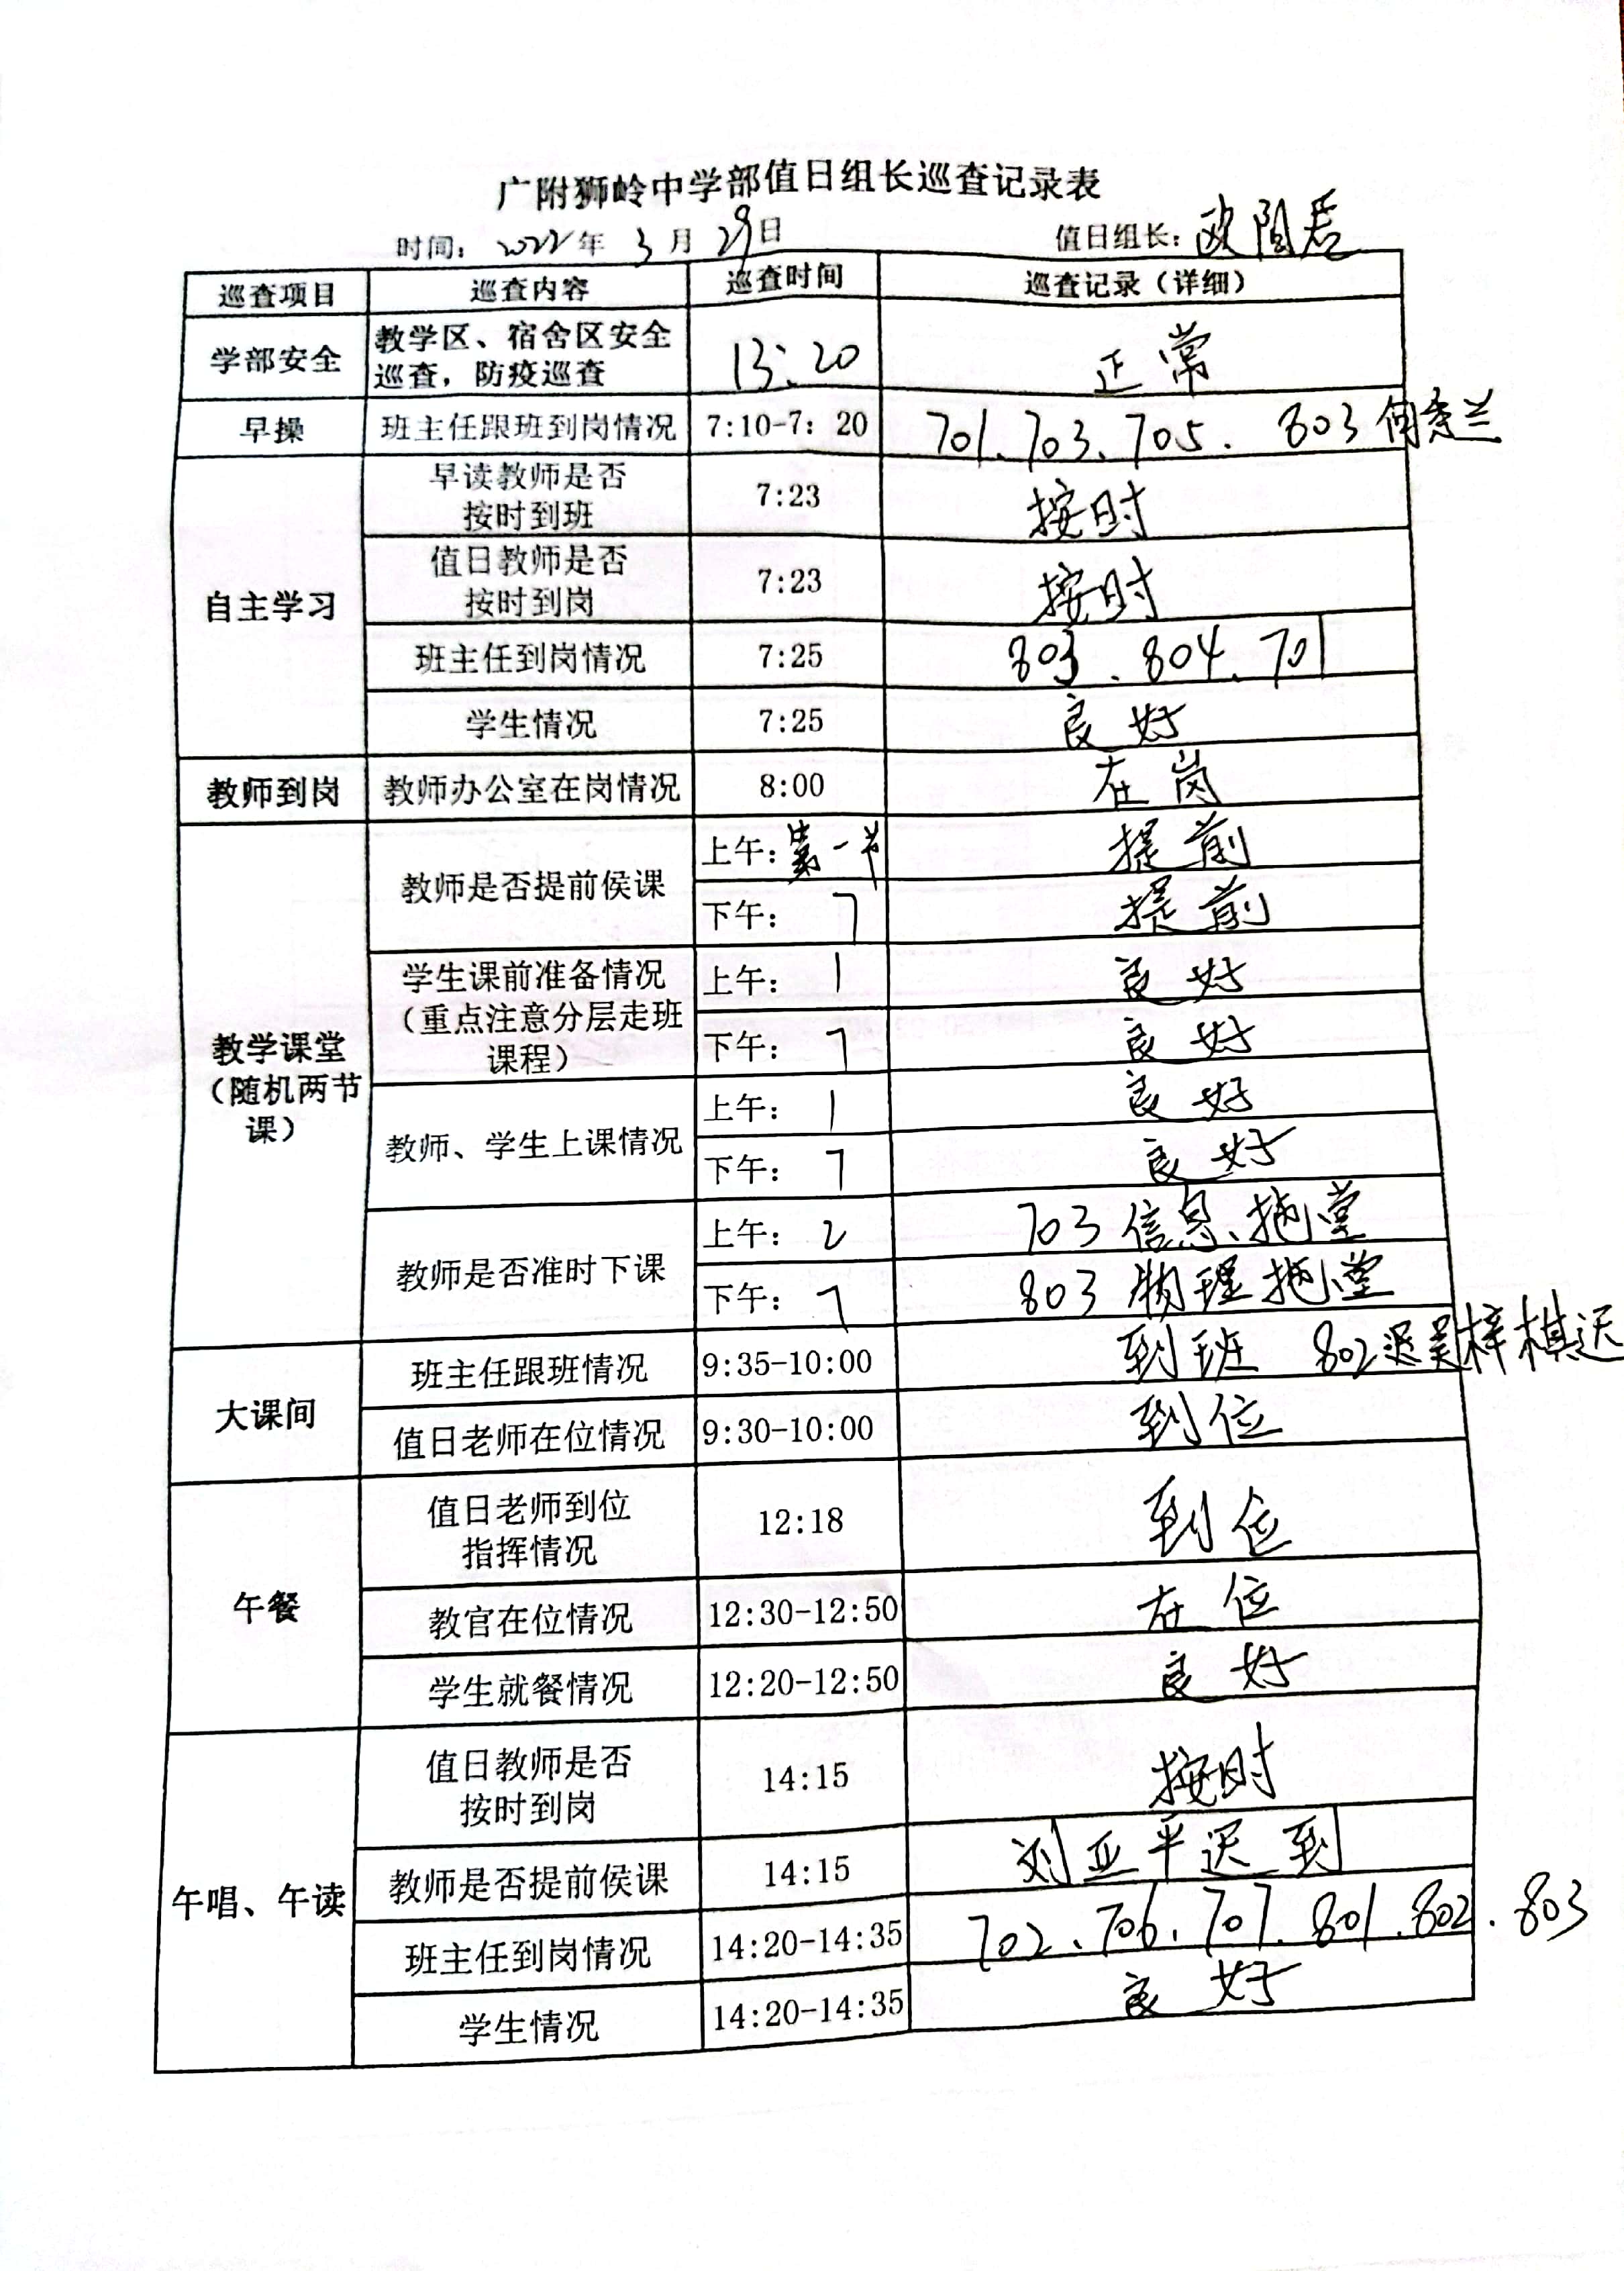 广附狮岭中学部值日组长巡查记录表
时间：2022年 3月 29日 值日组长：欧阳君
巡查项目 巡查内容 巡查时间 巡查记录（详细）
学部安全 教学区、宿舍区安全 13:20 正常
巡查，防疫巡查
早操 班主任跟班到岗情况 7:10-7：20 701、703、705. 803何 兰
自主学习 早读教师是否 7:23 按时
按时到班
值日教师是否 7:23 按时
按时到岗
班主任到岗情况 7:25 803.804.701
学生情况 7:25 良好
教师到岗 教师办公室在岗情况 8:00 在岗
教学课堂
（随机两节
课）
教师是否提前侯课 上午：第一节 提前
下午： 7 提前
学生课前准备情况 上午： 1 良好
（重点注意分层走班
课程） 下午： 7 良好
教师、学生上课情况 上午： 1 良好
下午： 7 良好
教师是否准时下课 上午： 2 703信息、拖堂
下午： 7 803物理拖堂
大课间 班主任跟班情况 9:35-10:00 到班 802迟吴梓棋迟
值日老师在位情况 9:30-10:00 到位
午餐 值日老师到位 12:18 到位
指挥情况
教官在位情况 12:30-12:50 在位
学生就餐情况 12:20-12:50 良好
午唱、午读 值日教师是否 14:15 按时
按时到岗
教师是否提前侯课 14:15 刘亚平迟到
班主任到岗情况 14:20-14:35 702、706、707.801.802.803
学生情况 14:20-14:35 良好